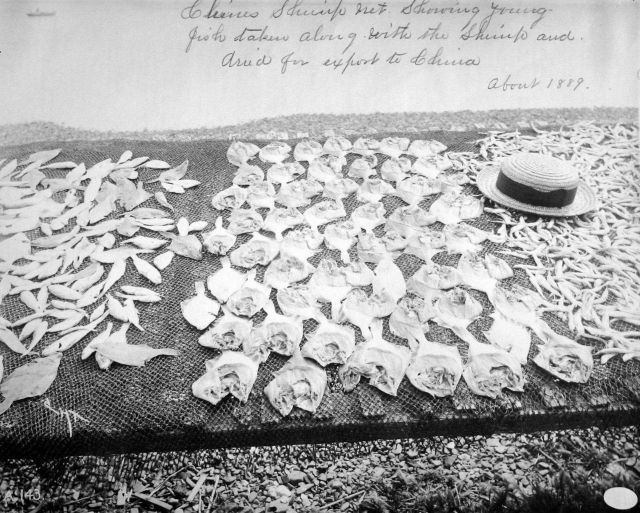 Chines Shrimp net. Showing young
fish taken along with the Shrimp and.
dried for export to China
about 1889.
143.